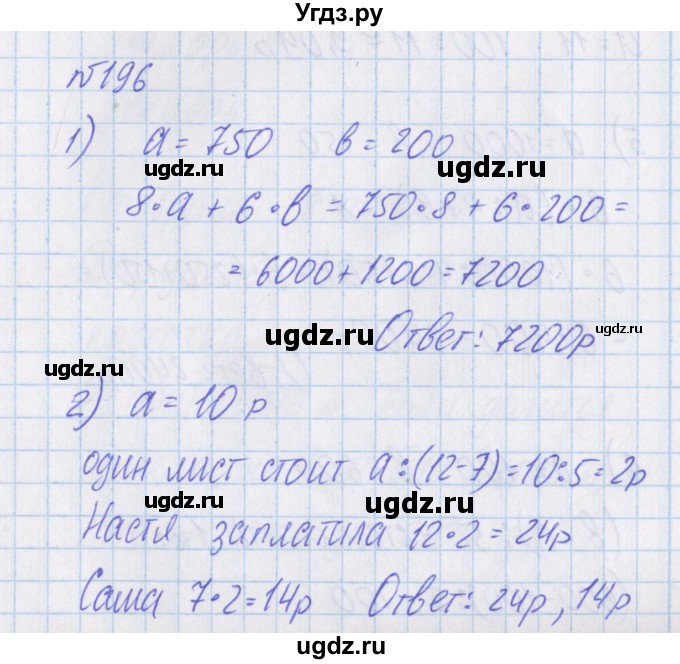 Угдз.ру
№196
1) a = 750 в = 200
ugdz.ru ugdz.ru
8·a + 6·в = 750·8 + 6·200 =
= 6000 + 1200 = 7200
ugdz.ru ugdz.ru
Ответ: 7200р
ugdz.ru
2) a = 10 р
один лист стоит a:(12-7)=10:5=2р
ugdz.ru ugdz.ru
Настя заплатила 12·2=24р
Саша 7·2=14р Ответ: 24р, 14р
ugdz.ru